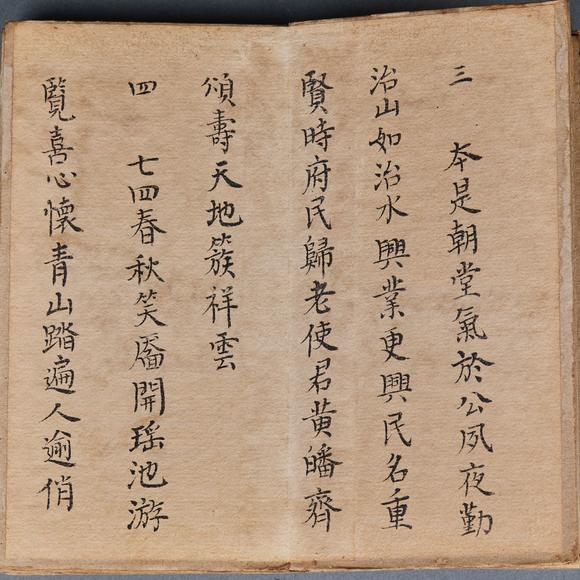 三 本是朝堂氣於公夙夜勤
治山如治水興業更興民名重
賢時府民歸老使君黃皤齊
頌壽天地簇祥雲
四 七四春秋笑靨開瑶池游
覽喜心懷青山踏遍人逾俏